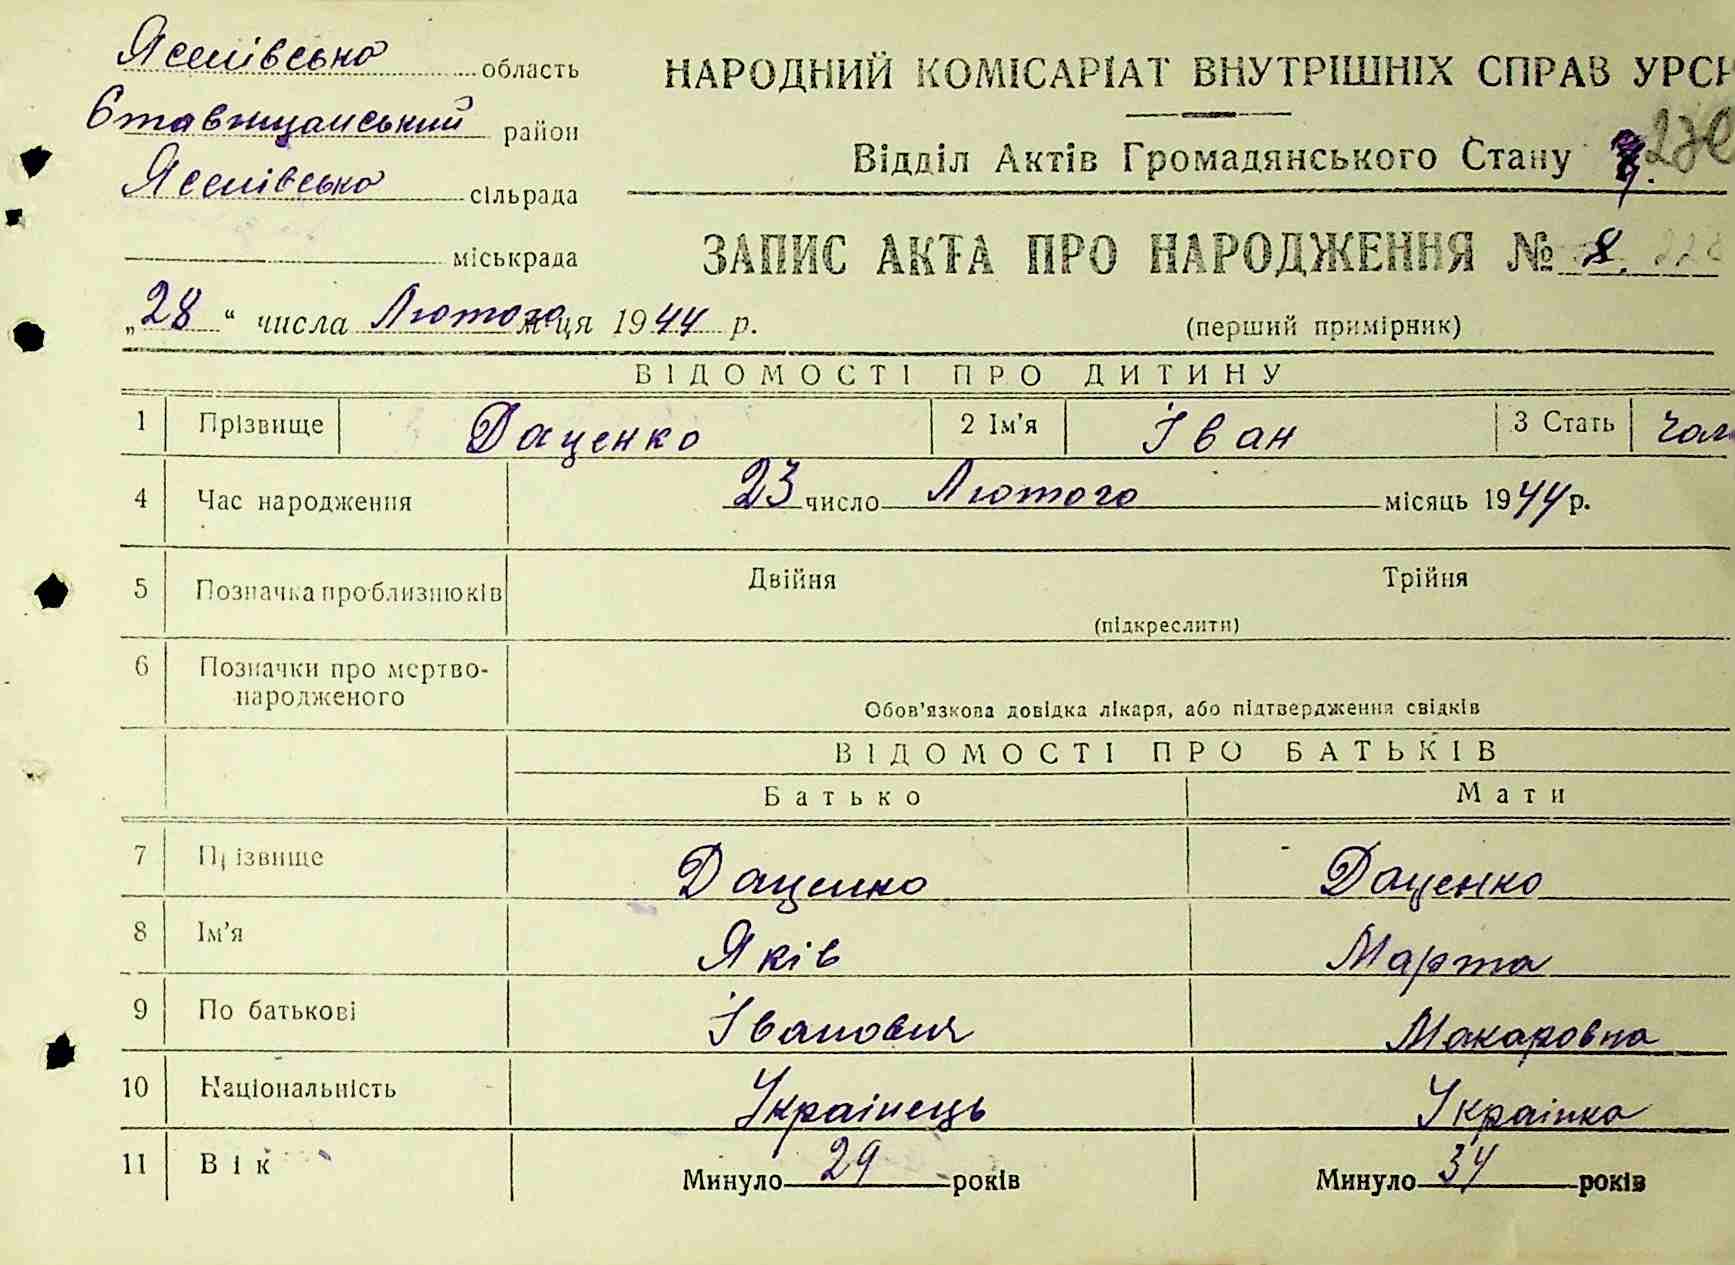 область
НАРОДНИЙ КОМІСАРІАТ ВНУТРІШНІХ СПРАВ УРСР
Ставищанський район
Відділ Актів Громадянського Стану
сільрада
міськрада
ЗАПИС АКТА ПРО НАРОДЖЕННЯ № 8.
„28“ числа Лютого м-ця 1944 р.
(перший примірник)
ВІДОМОСТІ ПРО ДИТИНУ
1 Прізвище Даценко 2 Ім'я Іван 3 Стать чол
4 Час народження 23 число Лютого місяць 1944 р.
5 Позначка про близнюків Двійня Трійня
(підкреслити)
6 Позначки про мертво-
народженого
Обов'язкова довідка лікаря, або підтвердження свідків
ВІДОМОСТІ ПРО БАТЬКІВ
Батько Мати
7 Прізвище Даценко Даценко
8 Ім'я Яків Марта
9 По батькові Іванович Макаровна
10 Національність Українець Українка
11 Вік Минуло 29 років Минуло 34 років